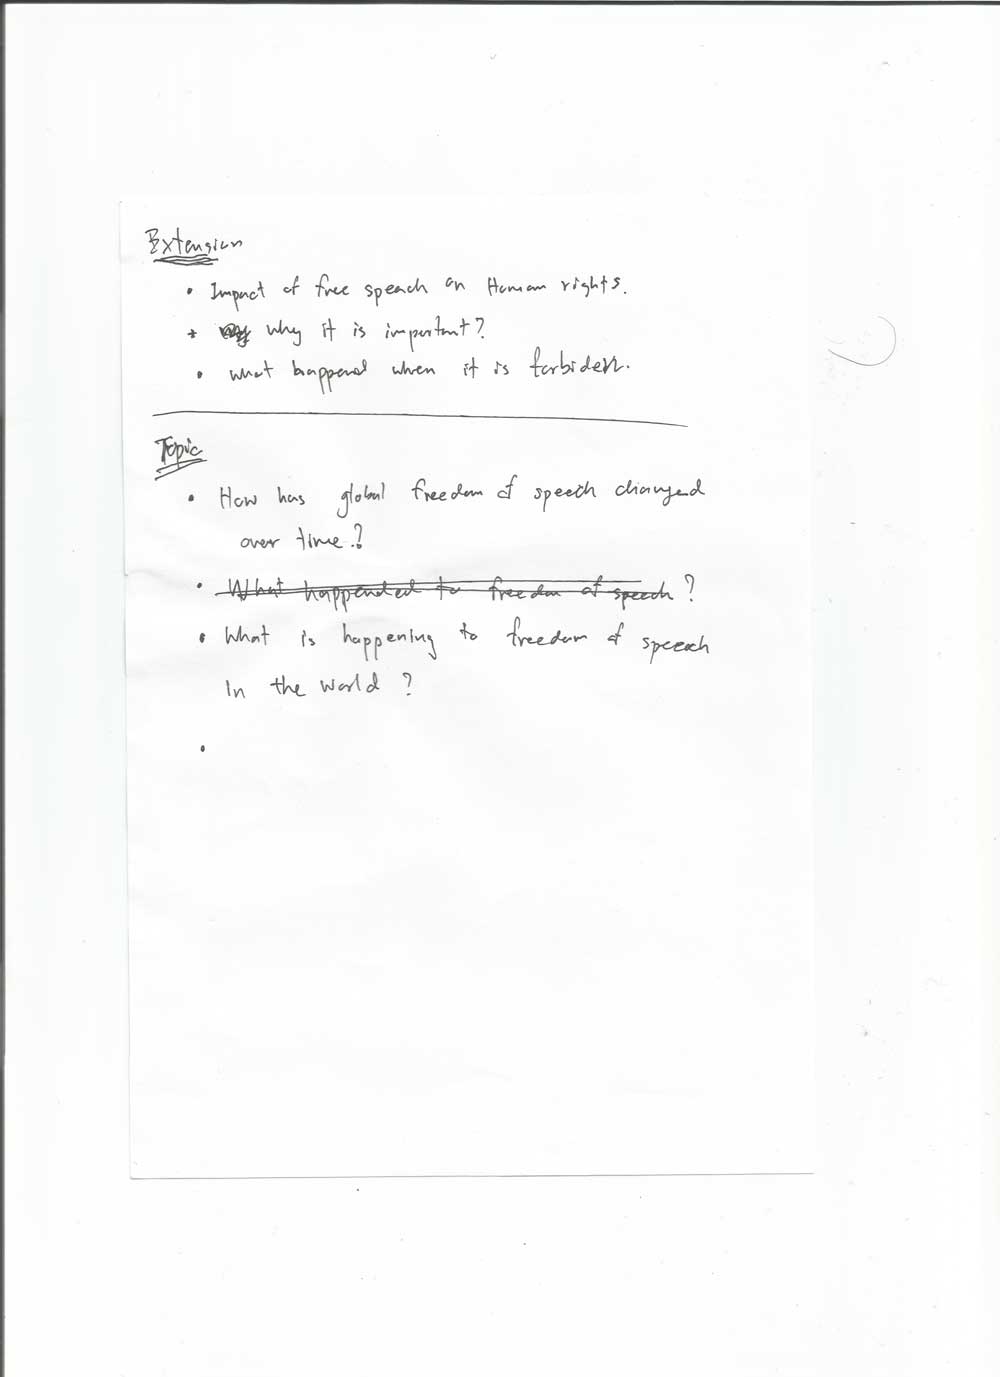 Extension
• Impact of free speach on Human rights.
• why it is important?
• what happend when it is forbiden.
Topic
• How has global freedom of speech changed
over time?
• What happended to freedom of speech?
• What is happening to freedom of speech
In the world?
•